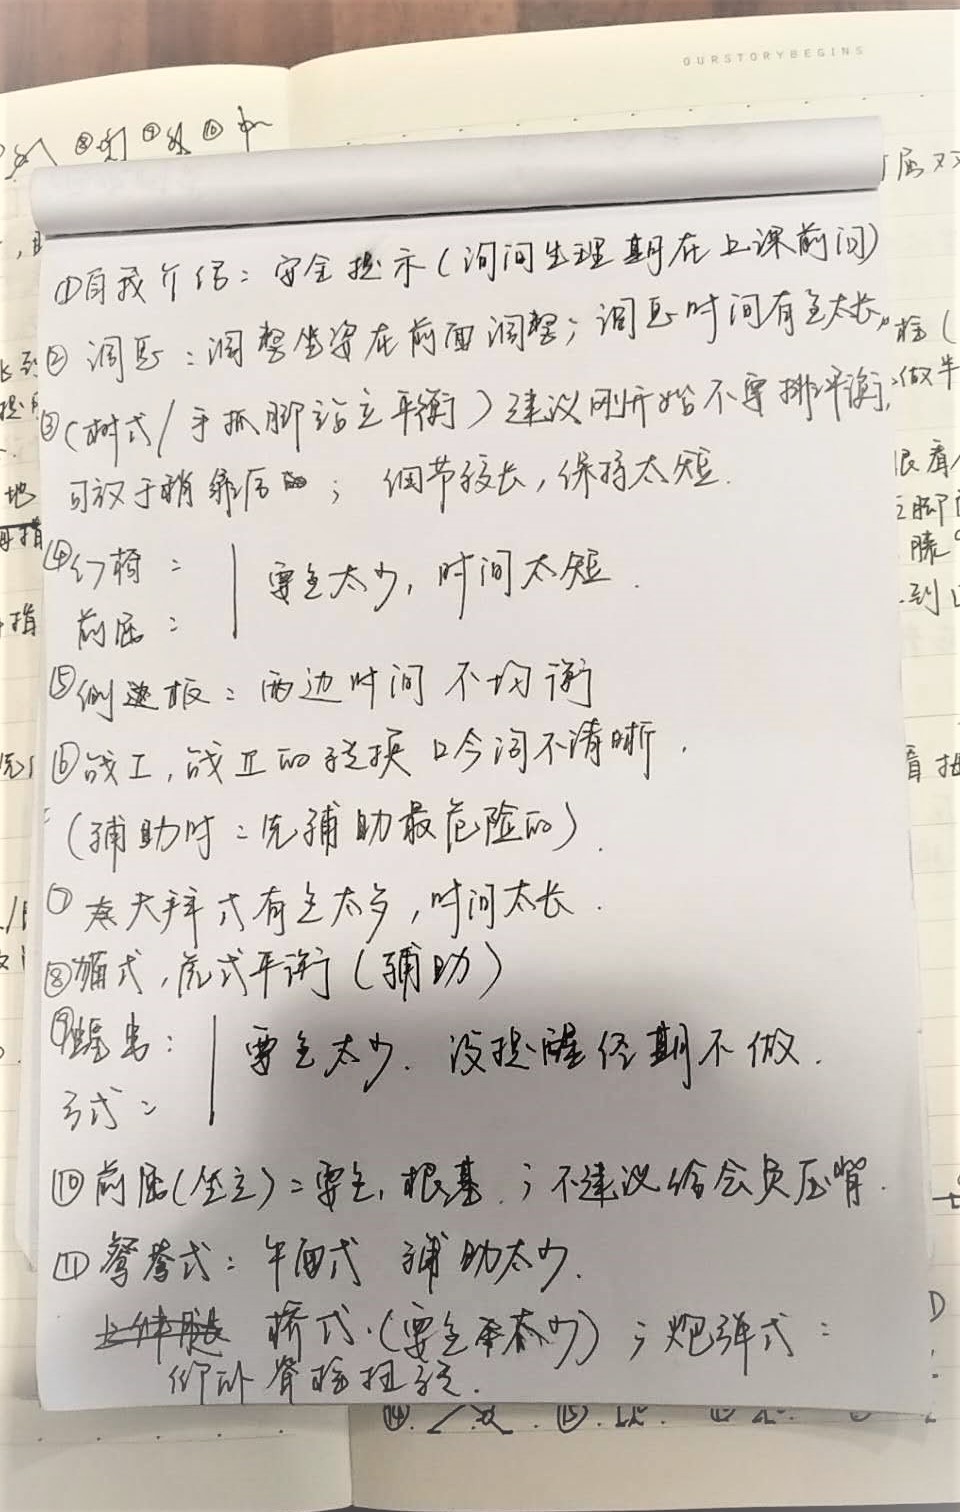 OURSTORYBEGINS
①自我介绍：安全提示（询问生理期在上课前问）
②调息：调整坐姿在前面调整；调息时间有点太长，
③（树式/手抓脚站立平衡）建议刚开始不要排平衡，
可放于稍靠后；细节较长，保持太短.
④幻椅：
前屈：
要点太少，时间太短.
⑤侧边板：两边时间不均衡
⑥战I，战II的转换口令词不清晰.
（辅助时：先辅助最危险的）.
⑦大拜式有点太多，时间太长.
⑧猫式，虎式平衡（辅助）
⑨蝗虫：
弓式：
要点太少. 没提醒经期不做.
⑩前屈（坐立）：要点，根基.；不建议给会员压背.
⑪鸳鸯式：牛面式 辅助太少.
桥式.（要点太少）；炮弹式：
仰卧脊柱扭转.